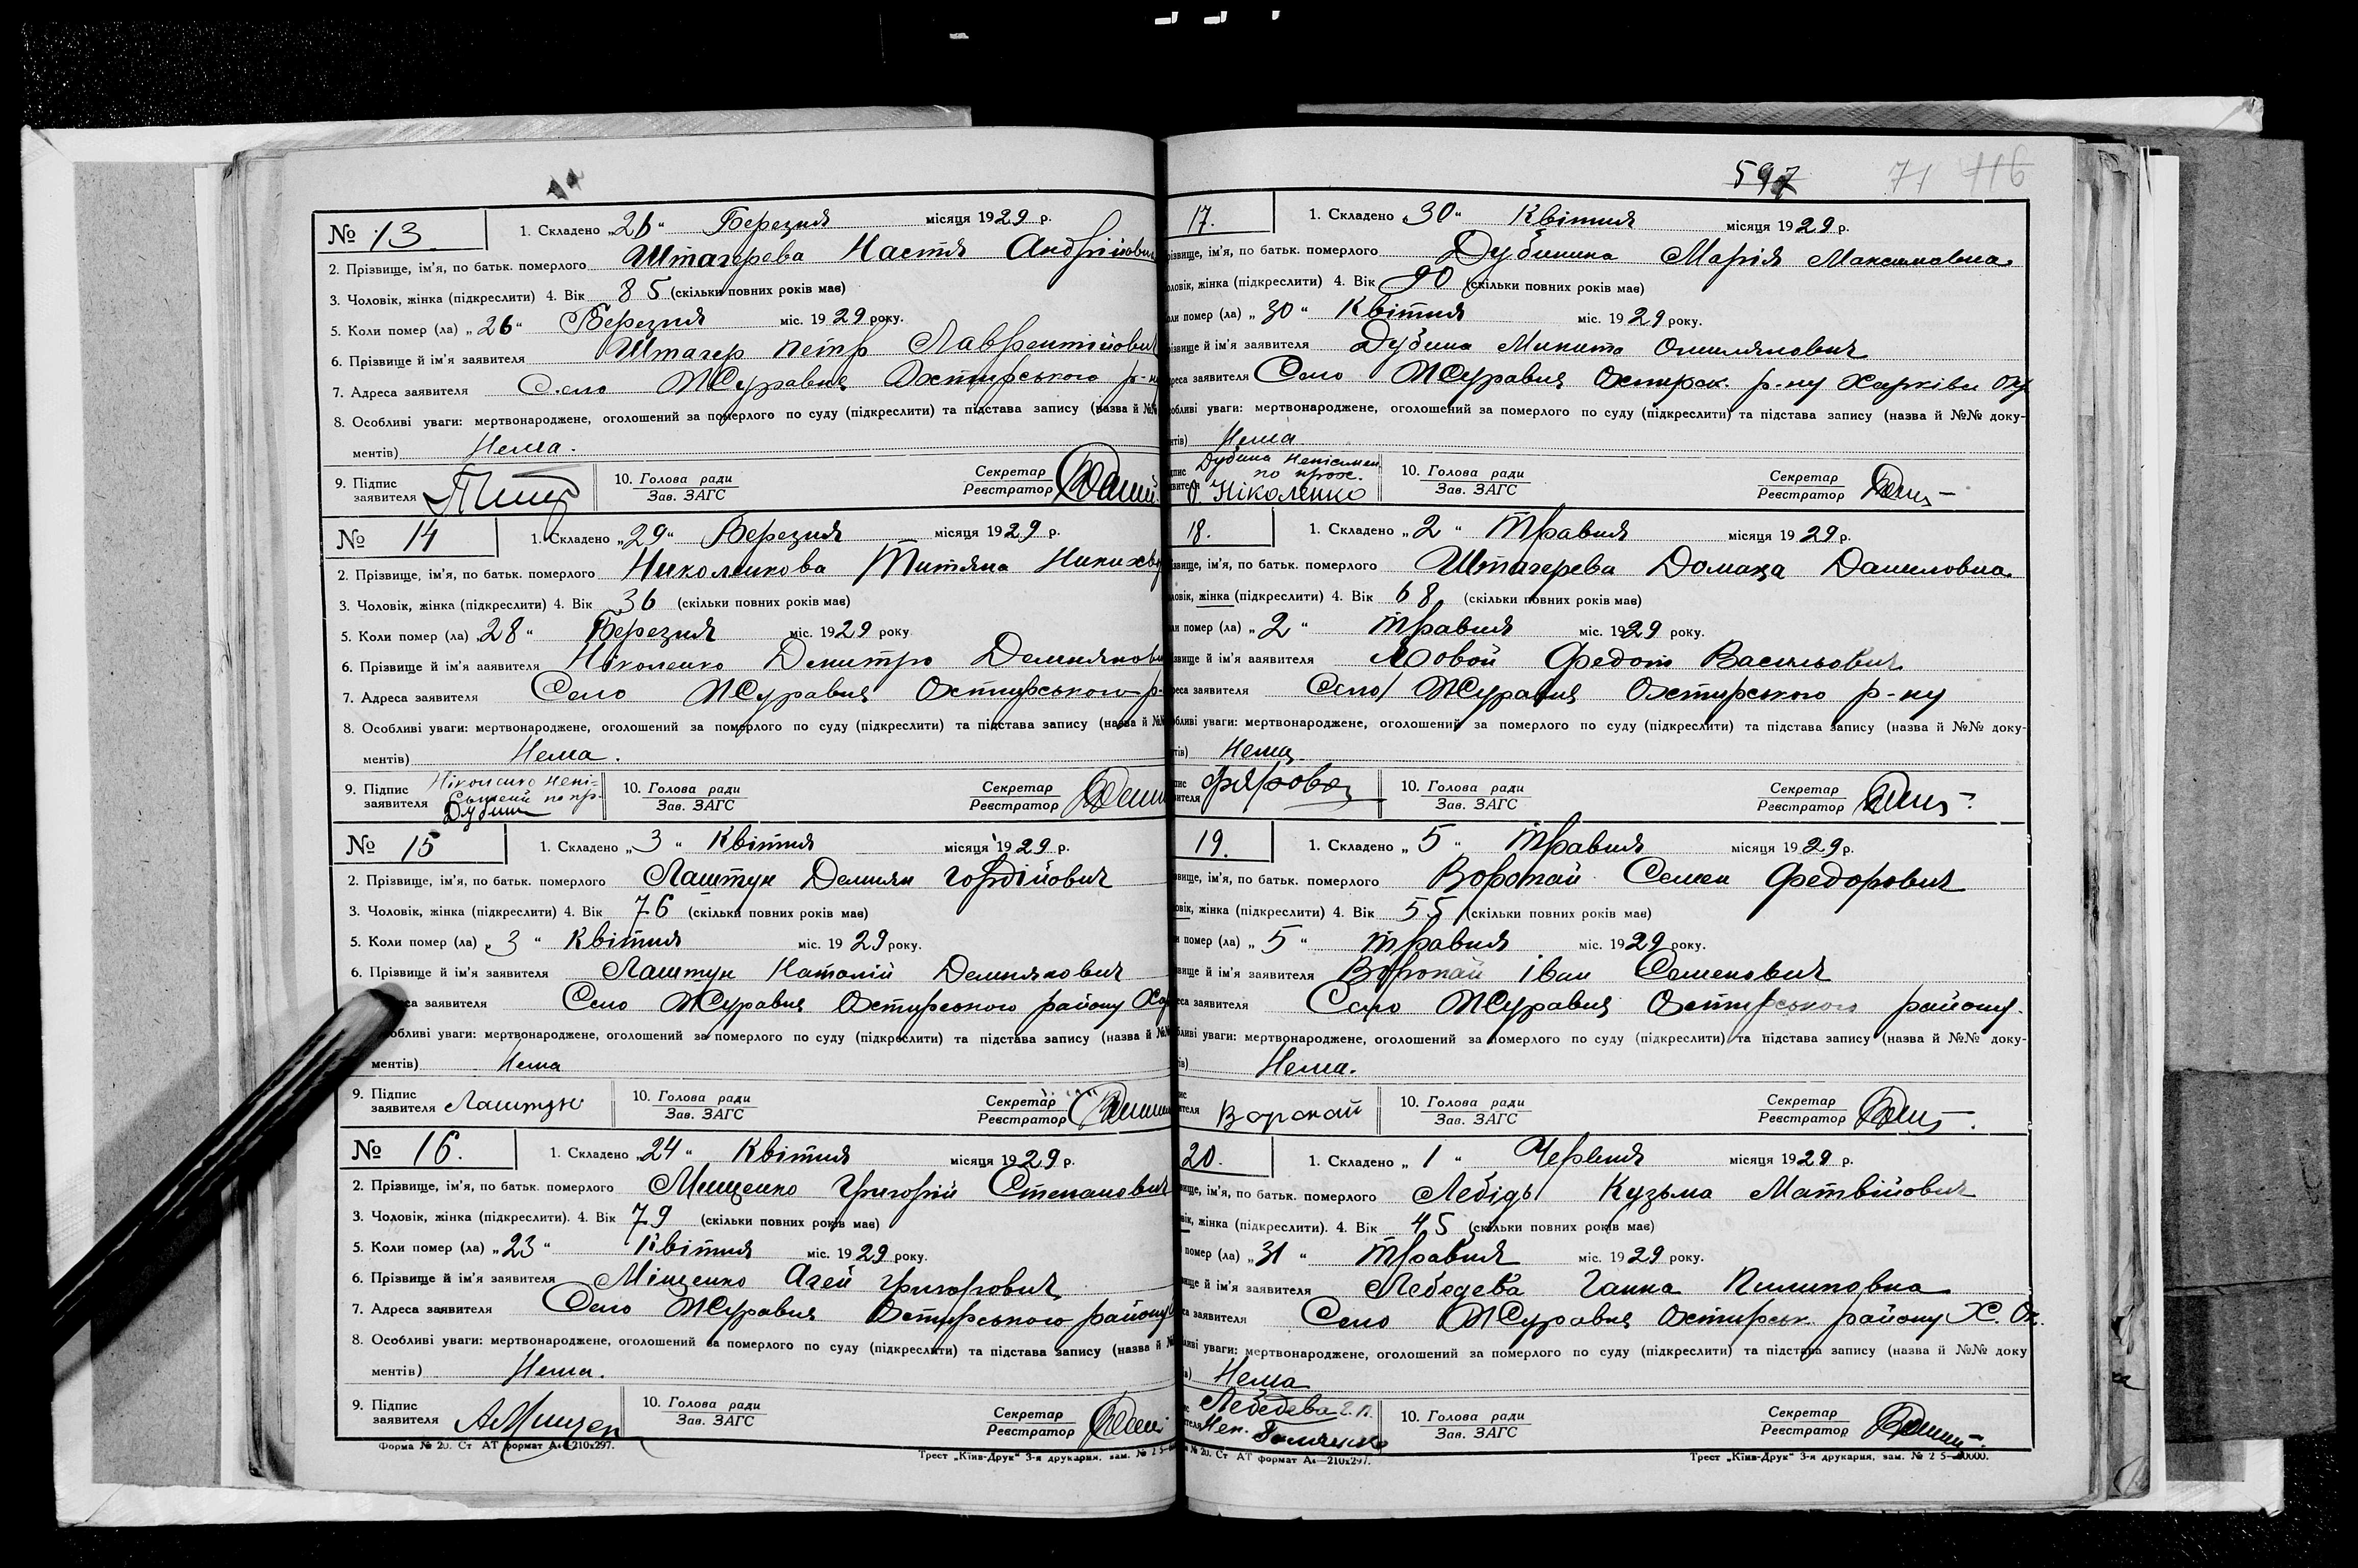 № 13. 1. Складено „26“ Березня місяця 1929 р.
2. Прізвище, ім'я, по батьк. померлого Штагерева Настя Андрійовн
3. Чоловік, жінка (підкреслити) 4. Вік 85 (скільки повних років має)
5. Коли помер (ла) „26“ Березня міс. 1929 року.
6. Прізвище й ім'я заявителя Штагер Петр Лаврентійович
7. Адреса заявителя Село Журавня Охтирського р-ну
8. Особливі уваги: мертвонароджене, оголошений за померлого по суду (підкреслити) та підстава запису (назва й №№
ментів) Нема.
9. Підпис заявителя 10. Голова ради Зав. ЗАГС Секретар Реєстратор
№ 14 1. Складено „29“ Березня місяця 1929 р.
2. Прізвище, ім'я, по батьк. померлого Николенкова Титяна
3. Чоловік, жінка (підкреслити) 4. Вік 36 (скільки повних років має)
5. Коли помер (ла) „28“ Березня міс. 1929 року.
6. Прізвище й ім'я заявителя Ніколенко Демитро Демянови
7. Адреса заявителя Село Журавня Охтирського р-
8. Особливі уваги: мертвонароджене, оголошений за померлого по суду (підкреслити) та підстава запису (назва й №№
ментів) Нема.
9. Підпис заявителя Ніколенко Непі-
сьмений по пр.
Дубина
10. Голова ради Зав. ЗАГС Секретар Реєстратор
№ 15 1. Складено „3“ Квітня місяця 1929 р.
2. Прізвище, ім'я, по батьк. померлого Лаштун Демян Гордійович
3. Чоловік, жінка (підкреслити) 4. Вік 76 (скільки повних років має)
5. Коли помер (ла) „3“ Квітня міс. 1929 року.
6. Прізвище й ім'я заявителя Лаштун Наталій Демянович
заявителя Село Журавня Охтирського району Хар
особливі уваги: мертвонароджене, оголошений за померлого по суду (підкреслити) та підстава запису (назва й №№
ментів) Нема
9. Підпис заявителя Лаштун 10. Голова ради Зав. ЗАГС Секретар Реєстратор
№ 16. 1. Складено „24“ Квітня місяця 1929 р.
2. Прізвище, ім'я, по батьк. померлого Мищенко Григорій Степанович
3. Чоловік, жінка (підкреслити). 4. Вік 79 (скільки повних років має)
5. Коли помер (ла) „23“ Квітня міс. 1929 року.
6. Прізвище й ім'я заявителя Міщенко Агей Григорович
7. Адреса заявителя Село Журавня Охтирського району
8. Особливі уваги: мертвонароджене, оголошений за померлого по суду (підкреслити) та підстава запису (назва й №
ментів) Нема.
9. Підпис заявителя АМищен 10. Голова ради Зав. ЗАГС Секретар Реєстратор
Форма № 20. Ст АТ формат А4—210х297.
Трест „Київ-Друк“ 3-я друкарня, зам. № 2 5—
597 71 116
17. 1. Складено „30“ Квітня місяця 1929 р.
різвище, ім'я, по батьк. померлого Дубинина Марія Максимовна.
оловік, жінка (підкреслити) 4. Вік 90 (скільки повних років має)
оли помер (ла) „30“ Квітня міс. 1929 року.
різвище й ім'я заявителя Дубина Микита Омилянович
реса заявителя Село Журавня Охтирск. р-ну Харківн Окр
обливі уваги: мертвонароджене, оголошений за померлого по суду (підкреслити) та підстава запису (назва й №№ доку-
нтів) Нема
Дубина Неписмен
по прох.
Ніколенко
10. Голова ради Зав. ЗАГС Секретар Реєстратор
18. 1. Складено „2“ Травня місяця 1929 р.
звище, ім'я, по батьк. померлого Штагерева Домаха Даниловна.
ловік, жінка (підкреслити) 4. Вік 68 (скільки повних років має)
ли помер (ла) „2“ Травня міс. 1929 року.
звище й ім'я заявителя Яровой Федот Васильович
реса заявителя Село Журавня Охтирського р-ну
бливі уваги: мертвонароджене, оголошений за померлого по суду (підкреслити) та підстава запису (назва й №№ доку-
тів) Нема
10. Голова ради Зав. ЗАГС Секретар Реєстратор
19. 1. Складено „5“ Травня місяця 1929 р.
звище, ім'я, по батьк. померлого Воропай Семен Федорович
овік, жінка (підкреслити) 4. Вік 55 (скільки повних років має)
и помер (ла) „5“ Травня міс. 1929 року.
звище й ім'я заявителя Воропай Іван Семенович
еса заявителя Село Журавня Охтирського району.
бливі уваги: мертвонароджене, оголошений за померлого по суду (підкреслити) та підстава запису (назва й №№ доку-
ів) Нема.
Воропай 10. Голова ради Зав. ЗАГС Секретар Реєстратор
20. 1. Складено „1“ Червня місяця 1929 р.
вище, ім'я, по батьк. померлого Лебідь Кузьма Матвійович
вік, жінка (підкреслити). 4. Вік 45 (скільки повних років має)
помер (ла) „31“ Травня міс. 1929 року.
вище й ім'я заявителя Лебедева Ганна Пилиповна
са заявителя Село Журавня Охтирськ. району Х. Ок.
ливі уваги: мертвонароджене, оголошений за померлого по суду (підкреслити) та підстава запису (назва й №№ доку
в) Нема
Лебедева Г.П.
Неп.
10. Голова ради Зав. ЗАГС Секретар Реєстратор
№ 20. Ст АТ формат А4—210х297.
Трест „Київ-Друк“ 3-я друкарня, зам. № 2 5—30000.